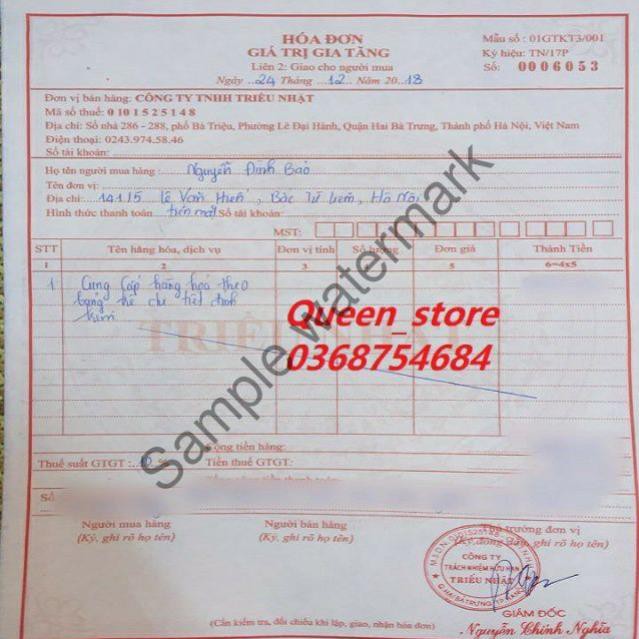 HÓA ĐƠN
GIÁ TRỊ GIA TĂNG
Liên 2: Giao cho người mua
Ngày 24 Tháng 12 Năm 2018
Mẫu số : 01GTKT3/001
Ký hiệu: TN/17P
Số: 0006053
Đơn vị bán hàng: CÔNG TY TNHH TRIỆU NHẬT
Mã số thuế: 0101525148
Địa chỉ: Số nhà 286 - 288, phố Bà Triệu, Phường Lê Đại Hành, Quận Hai Bà Trưng, Thành phố Hà Nội, Việt Nam
Điện thoại: 0243.974.58.46
Số tài khoản:
Họ tên người mua hàng : Nguyễn Đình Bảo
Tên đơn vị:
Địa chỉ: 14115 Lê Văn Hiến, Bắc Từ Liêm, Hà Nội
Hình thức thanh toán tiền mặt Số tài khoản:
MST:
STT Tên hàng hóa, dịch vụ Đơn vị tính Số lượng Đơn giá Thành Tiền
1 2 3 5 6=4x5
1 Cung cấp hàng hoá theo
bảng kê chi tiết đính
kèm
TRIỆU NHẬT
Queen_store
0368754684
Sample watermark
Cộng tiền hàng:
Thuế suất GTGT: 10 % Tiền thuế GTGT:
Số
Người mua hàng
(Ký, ghi rõ họ tên)
Người bán hàng
(Ký, ghi rõ họ tên)
Thủ trưởng đơn vị
M.S.D.N: 0101525148
CÔNG TY
TRÁCH NHIỆM HỮU HẠN
TRIỆU NHẬT
Q.HAI BÀ TRƯNG
GIÁM ĐỐC
Nguyễn Chính Nghĩa
(Cần kiểm tra, đối chiếu khi lập, giao, nhận hóa đơn)